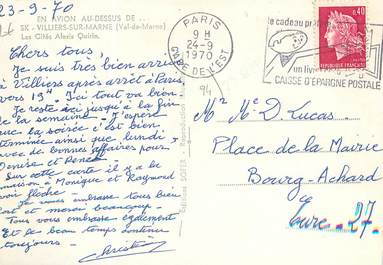 23-9-70
EN AVION AU-DESSUS DE ...
SK - VILLIERS-SUR-MARNE (Val-de-Marne)
Les Cités Alexis Quirin.
Chers tous,
Je suis très bien arrivée
à Villiers après arrêt à Paris
vers 19h. Ici tout va bien.
Je reste ici jusqu'à la fin
de la semaine. J'espère
que la soirée s'est bien
terminée ainsi que lundi
avec de bonnes affaires pour
Denise et René.
Sur cette carte il y a la
maison à Monique et Raymond
voir flèche.
Je vous embrasse tous bien
fort et merci beaucoup.
Tous vous embrasse également
Et le beau temps continue
toujours.
Christian
PARIS
9 H
24-9
1970
GARE DE L'EST
94
le cadeau
un livret
CAISSE D'EPARGNE POSTALE
0,40
REPUBLIQUE FRANÇAISE
Mr Me D. Lucas
Place de la Mairie
Bourg-Achard
Eure - 27.